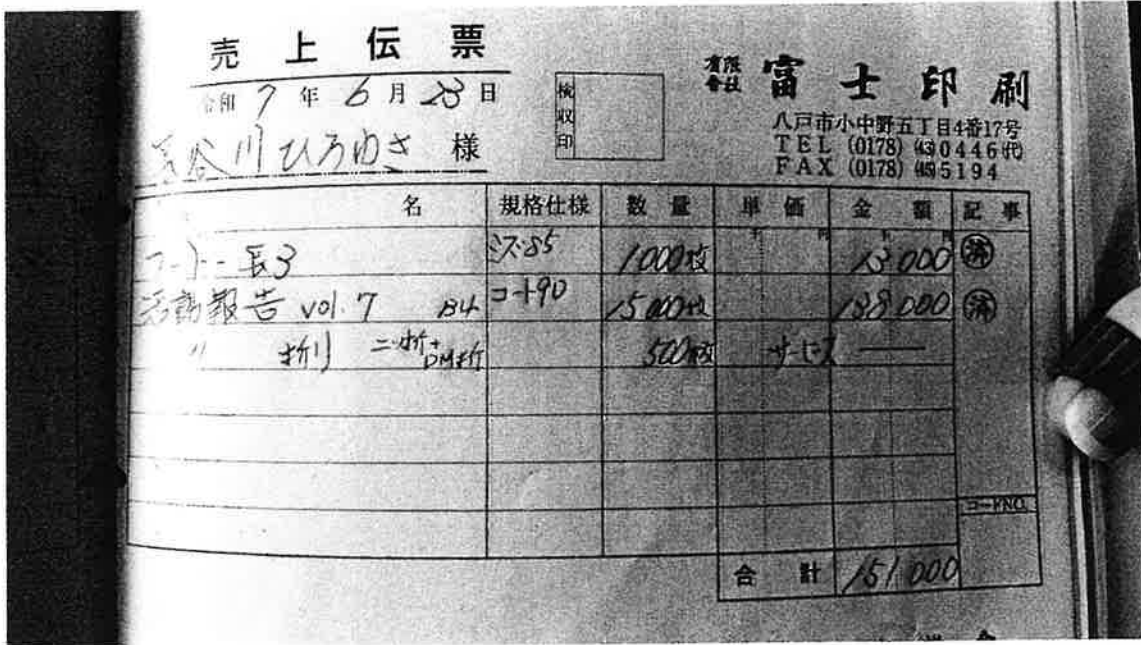 売上伝票
令和 7 年 6 月 23 日
検収印
有限会社 富士印刷
八戸市小中野五丁目4番17号
TEL (0178) (43) 0446(代)
FAX (0178) (45) 5194
長谷川ひろゆき 様
名 規格仕様 数量 単価 金額 記事
長3 1000枚 13000 済
活動報告 vol.7 B4 コート90 15000枚 138000 済
〃 折り 二ツ折+DM折 500枚 サービス
コードNO.
合計 151000